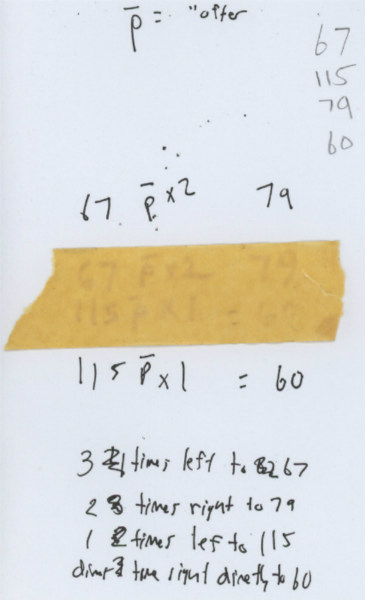 p̄ = "after
67
115
79
60
67 p̄ x2 79
67 p̄ x2 79
115 p̄ x 1 = 60
115 p̄ x 1 = 60
3 times left to 67
2 times right to 79
1 times left to 115
time right directly to 60